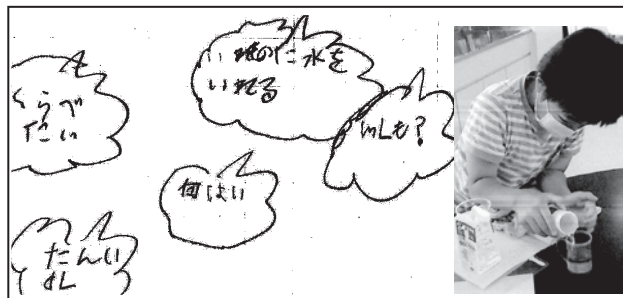 くらべ
たい
い物に水を
いれる
mLも?
何はい
たんい
dL